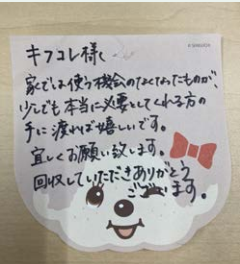 キフコレ様へ
家では使う機会のなくなったものが、
少しでも本当に必要としてくれる方の
手に渡れば嬉しいです。
宜しくお願い致します。
回収していただきありがとう
ございます。